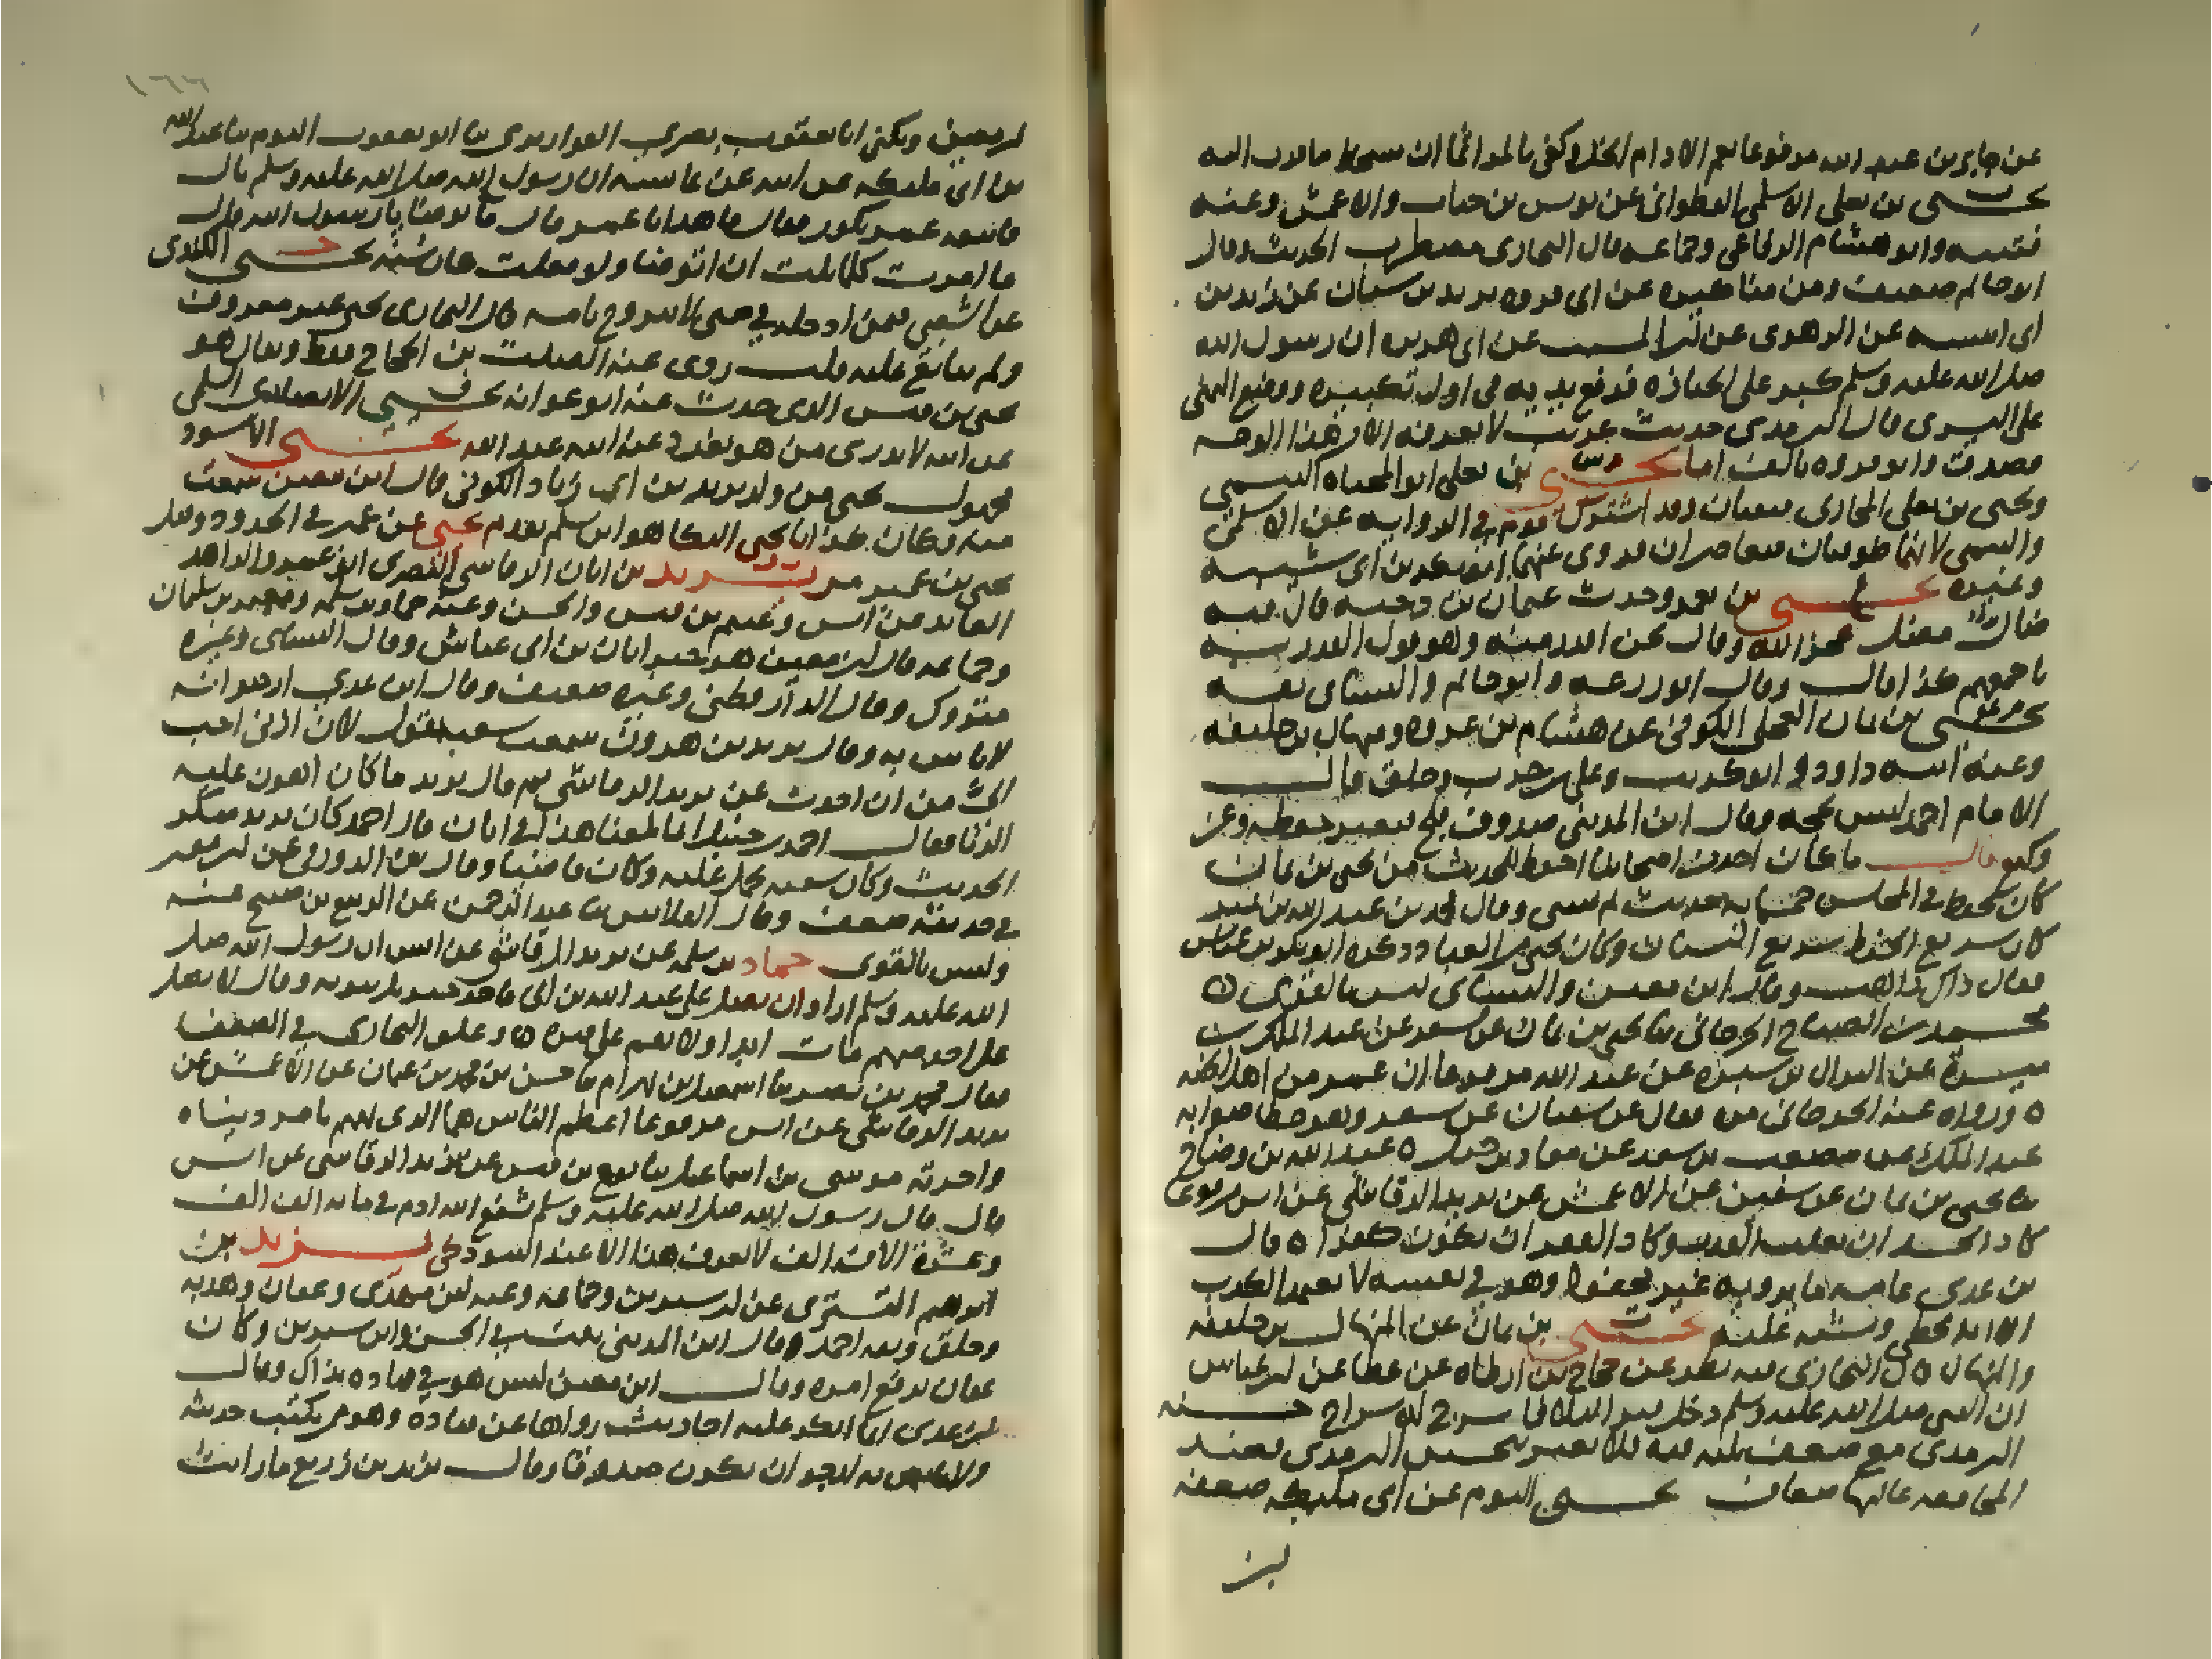 عن جابر بن عبد الله مرفوعا نعم الادام الخل وكفى بالمرء اثما ان يسخط ما قرب اليه
يحيى بن يعلى الاسلمي القطواني عن يونس بن خباب والاعمش وعنه
قتيبه وابو هشام الرفاعي وجماعه قال البخاري مضطرب الحديث وقال
ابو حاتم ضعيف ومن مناكيره عن ابي فروه يزيد بن سنان عن زيد بن
ابي انيسه عن الزهري عن ابن المسيب عن ابي هريره ان رسول الله
صلى الله عليه وسلم كبر على الجنازه فرفع يديه في اول تكبيره ووضع اليمنى
على اليسرى قال الترمذي حديث غريب لا نعرفه الا من هذا الوجه
فصدق وابو فروه تالف اما يحيى بن يعلى ابو المحياه التيمي
ويحيى بن يعلى المحاربي فثقتان وقد اشترك قوم في الروايه عن الاسلمي
والتيمي لانهما كوفيان متعاصران فروى عنهما ابو بكر بن ابي شيبه
وغيره يحيى بن حدث عثمان بن دحيه قال فيه
ضال معتزل وقال نحن القدريه وهو قول القدريه
باجمعهم كذا قال وقال ابو زرعه وابو حاتم والنسائي ثقه
يحيى بن يمان العجلي الكوفي عن هشام بن عروه ومنهال بن خليفه
وعنه ابنه داود وابو كريب وعلي بن حرب وخلق قال
الامام احمد ليس بحجه وقال ابن المديني صدوق فلج فتغير حفظه وعن
وكيع قال ما كان احد من اصحابنا احفظ للحديث من يحيى بن يمان
كان يحفظ في المجلس خمسمايه حديث ثم نسي وقال محمد بن عبد الله بن نمير
كان سريع الحفظ سريع النسيان وكان يحيى من العباد ذكره ابو بكر بن عياش
فقال ذاك ذاهب وقال ابن معين والنسائي ليس بالقوي ٥
محمد بن الصباح الجرجاني ثنا يحيى بن يمان عن مسعر عن عبد الملك بن
ميسرة عن النزال بن سبره عن عبد الله مرفوعا ان عمر من اهل الجنه
٥ ورواه عنه الجرجاني مره فقال عن سفيان عن مسعر وهو خطا صوابه
عبد الملك عن مصعب بن سعد عن معاذ بن جبل ٥ عبد الله بن وضاح
ثنا يحيى بن يمان عن سفين عن الاعمش عن يزيد الرقاشي عن انس مرفوعا
كاد الحسد ان يغلب القدر وكاد الفقر ان يكون كفرا ٥ قال
بن عدي عامه ما يرويه غير محفوظ وهو في نفسه لا يتعمد الكذب
الا انه يخطي ويشبه عليه يحيى بن يمان عن المنهال بن خليفه
والمنهال قال البخاري فيه نظر عن حجاج بن ارطاه عن عطا عن ابن عباس
ان النبي صلى الله عليه وسلم دخل قبرا ليلا فاسرج له سراج حسنه
الترمذي مع ضعف ثلثه فيه فلا تغتر بتحسين الترمذي فعند
المحاققه غالبها ضعاف يحيى التوم عن ابن ابي مليكه ضعفه
ابن
١٦٦
ابن معين ويكنى ابا يعقوب بصري القواريري ثنا ابو يعقوب التوم ثنا عبد الله
بن ابي مليكه عن امه عن عايشه ان رسول الله صلى الله عليه وسلم بال
فاتبعه عمر بكوز فقال ما هذا يا عمر قال ما توضا يا رسول الله قال
ما امرت كلما بلت ان اتوضا ولو فعلت كان سنه يحيى الكندي
عن الشعبي فيمن اوخله في صبي لا يتزوج بامه قال البخاري يحيى غير معروف
ولم يتابع عليه قلت روى عنه الصلت بن الحجاج فقط ويقال هو
يحيى بن قيس الذي حدث عنه ابو عوانه يحيى الانصاري السلمي
عن ابيه لا يدرى من هو تفرد عنه ابنه عبد الله يحيى الاسود
مجهول يحيى من ولد يزيد بن ابي زياد الكوفي قال ابن معين سمعت
منه وكان كذابا يحيى البكا هو ابن سلم تقدم يحيى عن عمر في الحدود وقيل
يحيى بن عمير مر يزيد بن ابان الرقاشي البصري ابو عمرو الزاهد
العابد عن انس وغنيم بن قيس والحسن وعنه حماد بن سلمه ومعتمر بن سليمان
وجماعه قال ابن معين هو خير من ابان بن ابي عياش وقال النسائي وغيره
متروك وقال الدارقطني وغيره ضعيف وقال ابن عدي ارجو انه
لا باس به وقال يزيد بن هرون سمعت شعبه يقول لان ازني احب
الي من ان احدث عن يزيد الرقاشي ثم قال يزيد ما كان اهون عليه
الزنا فقال احمد بن حنبل انما بلغنا هذا في ابان قال احمد كان يزيد منكر
الحديث وكان شعبه يحمل عليه وكان قاصا وقال بن الدورقي عن ابن معين
في حديثه ضعف وقال الفلاس ثنا عبد الرحمن عن الربيع بن صبيح عنه
وليس بالقوي حماد بن سلمه عن يزيد الرقاشي عن انس ان رسول الله صلى
الله عليه وسلم اراد ان يصلي على عبد الله بن ابي فاخذ جبريل بثوبه وقال لا تصل
على احد منهم مات ابدا ولا تقم على قبره ٥ وعلق البخاري في الضعفا
فقال محمد بن نصر ثنا اسمعيل بن بهرام ثنا حسن بن محمد بن عثمان عن الاعمش عن
يزيد الرقاشي عن انس مرفوعا اعظم الناس هما الذي يهتم بامر دنياه
واخرته موسى بن اسماعيل ثنا نوح بن قيس عن يزيد الرقاشي عن انس
قال قال رسول الله صلى الله عليه وسلم شفع الله ادم في مائه الف الف
وعشرة الاف الف لا يعرف هذا الا عند التبوذكي يزيد بن
ابرهيم التستري عن ابن سيرين وجماعه وعنه ابن مهدي وعفان وهدبه
وخلق وثقه احمد وقال ابن المديني ثبت في الحسن وابن سيرين وكان
عفان يرفع امره وقال ابن معين ليس هو في قتاده بذاك وقال
ابن عدي انما انكر عليه احاديث رواها عن قتاده وهو ممن يكتب حديثه
ولا باس به ارجو ان يكون صدوقا وقال يزيد بن زريع ما رايت